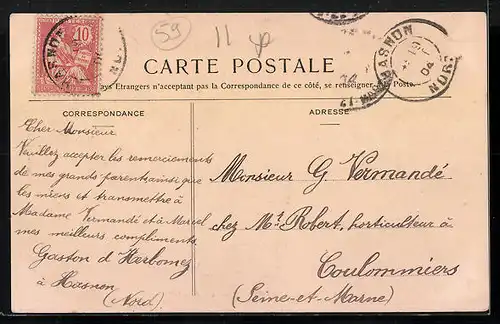 59
11
10
HASNON
CARTE POSTALE
HASNON
04
NORD
ays Etrangers n'acceptant pas la Correspondance de ce côté, se renseigner
Poste.
CORRESPONDANCE
ADRESSE
Cher Monsieur
Veuillez accepter les remerciements
de mes grands parents ainsi que
les miens et transmettre à
Madame Vermandé et à Marcel
mes meilleurs compliments
Gaston d'Harbomez
à Hasnon
(Nord)
Monsieur G. Vermandé
chez Mr. Robert, horticulteur à
Coulommiers
(Seine-et-Marne)